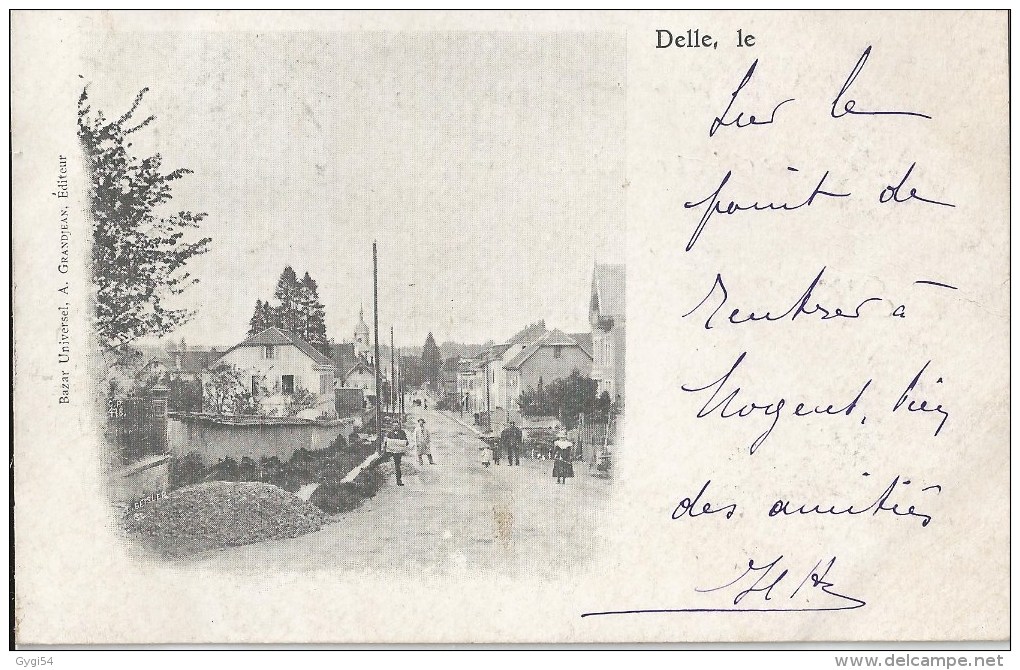 Delle, le
Sur le
point de
rentrer à
Nogent, bien
des amitiés
Bazar Universel, A. GRANDJEAN, Éditeur
Gygi54
www.delcampe.net